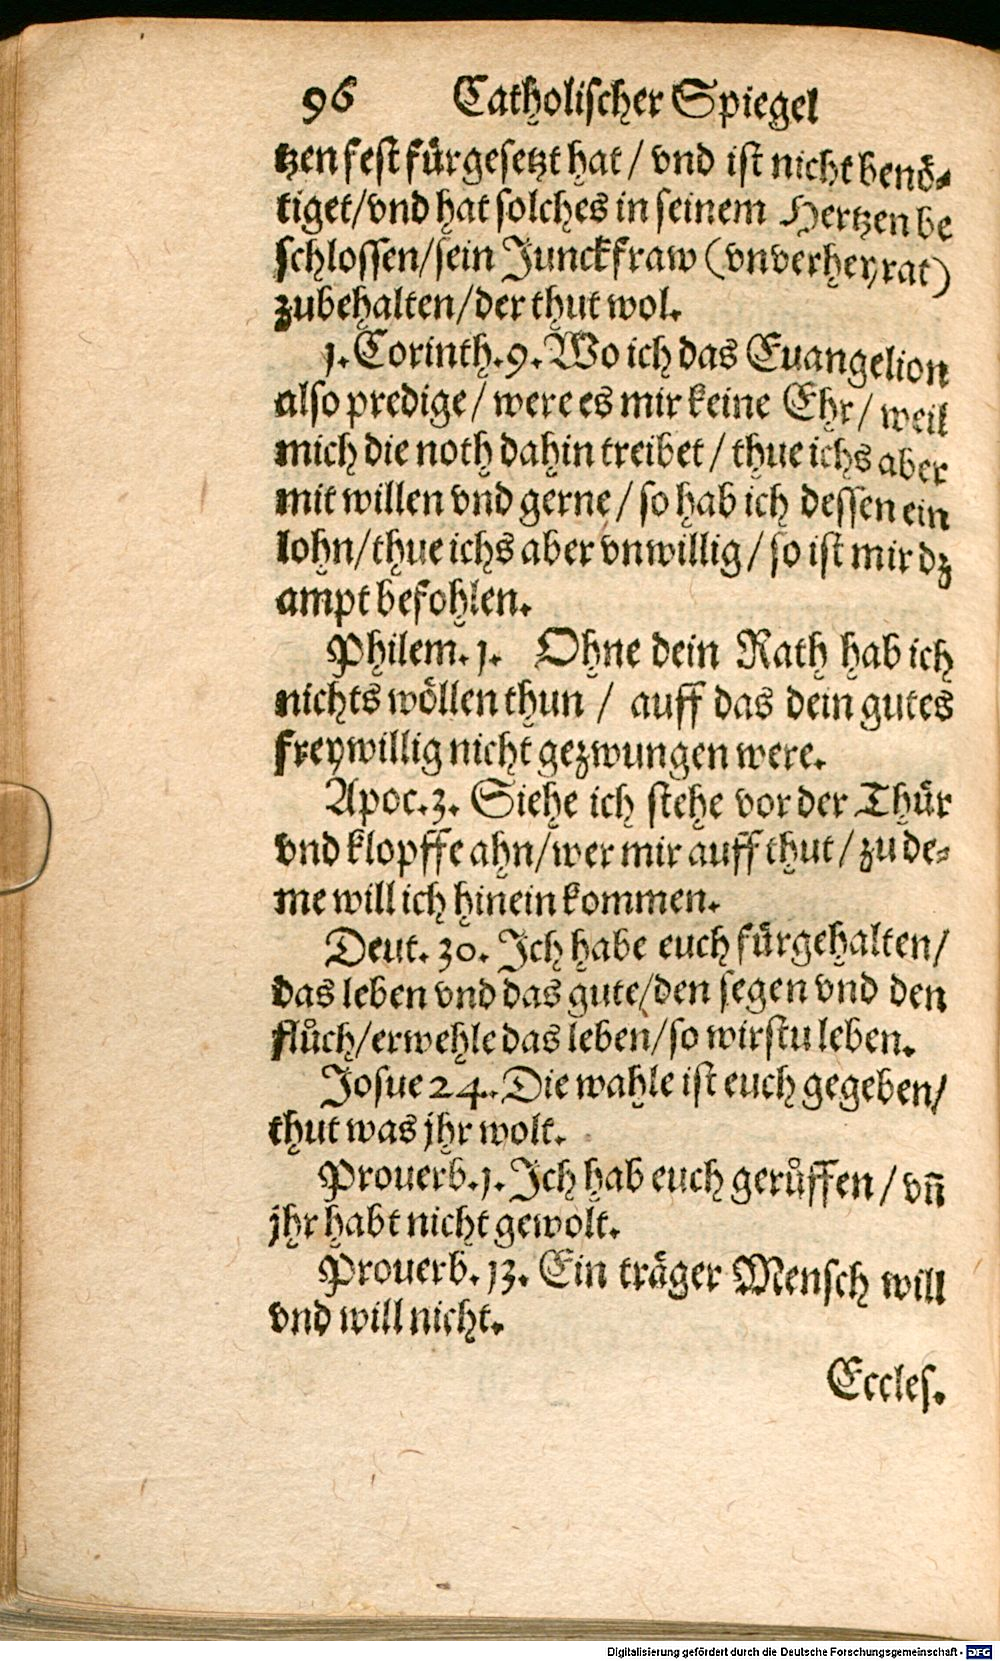 96 Catholischer Spiegel
tzen fest fürgesetzt hat / vnd ist nicht benö-
tiget/vnd hat solches in seinem Hertzen be
schlossen/sein Junckfraw (vnverheyrat)
zubehalten/der thut wol.
1. Corinth. 9. Wo ich das Euangelion
also predige / were es mir keine Ehr / weil
mich die noth dahin treibet / thue ichs aber
mit willen vnd gerne / so hab ich dessen ein
lohn/thue ichs aber vnwillig / so ist mir dz
ampt befohlen.
Philem. 1. Ohne dein Rath hab ich
nichts wöllen thun / auff das dein gutes
freywillig nicht gezwungen were.
Apoc. 3. Siehe ich stehe vor der Thür
vnd klopffe ahn/wer mir auff thut / zu de-
me will ich hinein kommen.
Deut. 30. Ich habe euch fürgehalten/
das leben vnd das gute/den segen vnd den
flůch/erwehle das leben/so wirstu leben.
Josue 24. Die wahle ist euch gegeben/
thut was jhr wolt.
Prouerb. 1. Ich hab euch gerůffen / vñ
jhr habt nicht gewolt.
Prouerb. 13. Ein träger Mensch will
vnd will nicht.
Eccles.
Digitalisierung gefördert durch die Deutsche Forschungsgemeinschaft - DFG